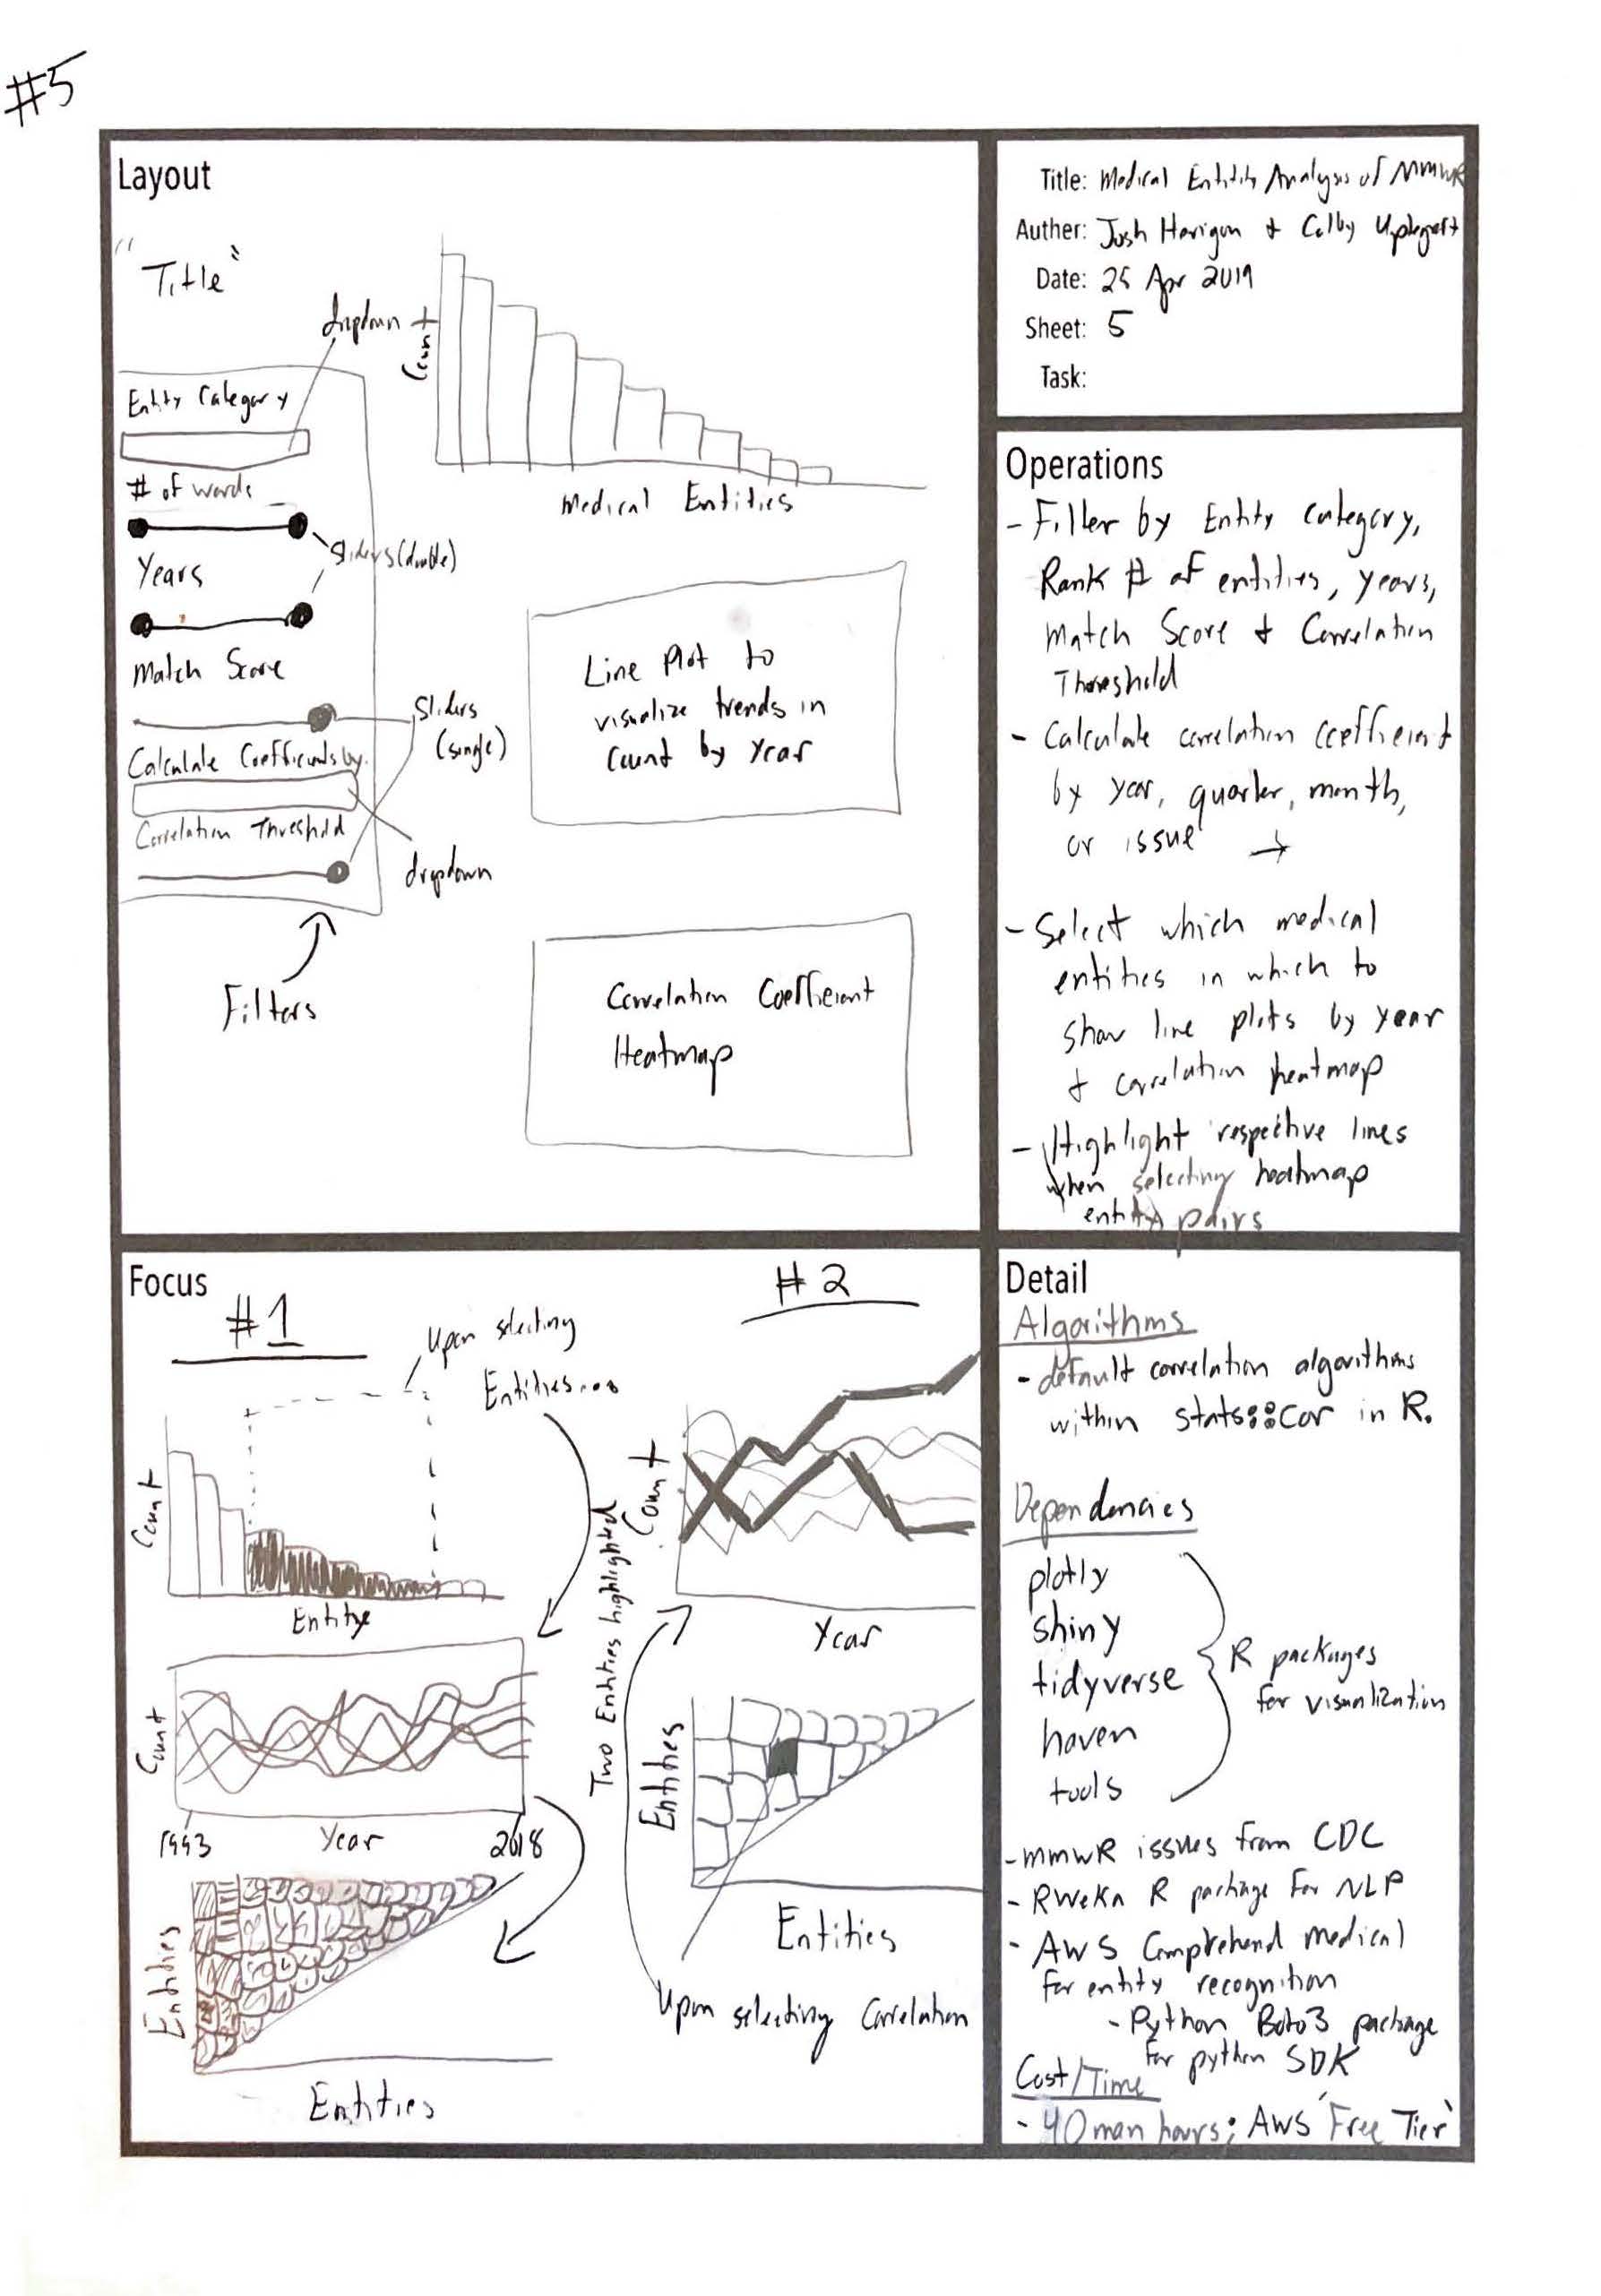 #5
Layout
"Title"
dropdown
Count
Medical Entities
Entity Category
# of words
Sliders (double)
Years
Match Score
Sliders
(single)
Calculate Coefficients by
Correlation Threshold
dropdown
Filters
Line Plot to
visualize trends in
count by year
Correlation Coefficient
Heatmap
Title: Medical Entity Analysis of MMWR
Auther: Josh Horigon + Colby
Date: 25 Apr 2019
Sheet: 5
Task:
Operations
- Filter by Entity category,
Rank # of entities, years,
Match Score + Correlation
Threshold
- Calculate correlation coefficient
by year, quarter, month,
or issue →
- Select which medical
entities in which to
show line plots by year
+ correlation heatmap
- Highlight respective lines
when selecting heatmap
entity pairs
Focus
#1
Upon selecting
Entities...
Count
Entity
Count
1993 Year 2018
Entities
Entities
#2
Two Entities highlighted
Count
Year
Entities
Entities
Upon selecting Correlation
Detail
Algorithms
- default correlation algorithms
within stats::cor in R.
Dependencies
plotly
shiny
tidyverse
haven
tools
R packages
for visualization
- MMWR issues from CDC
- RWeka R package for NLP
- AWS Comprehend Medical
for entity recognition
- Python Boto3 package
for python SDK
Cost/Time
- 40 man hours; AWS 'Free Tier'